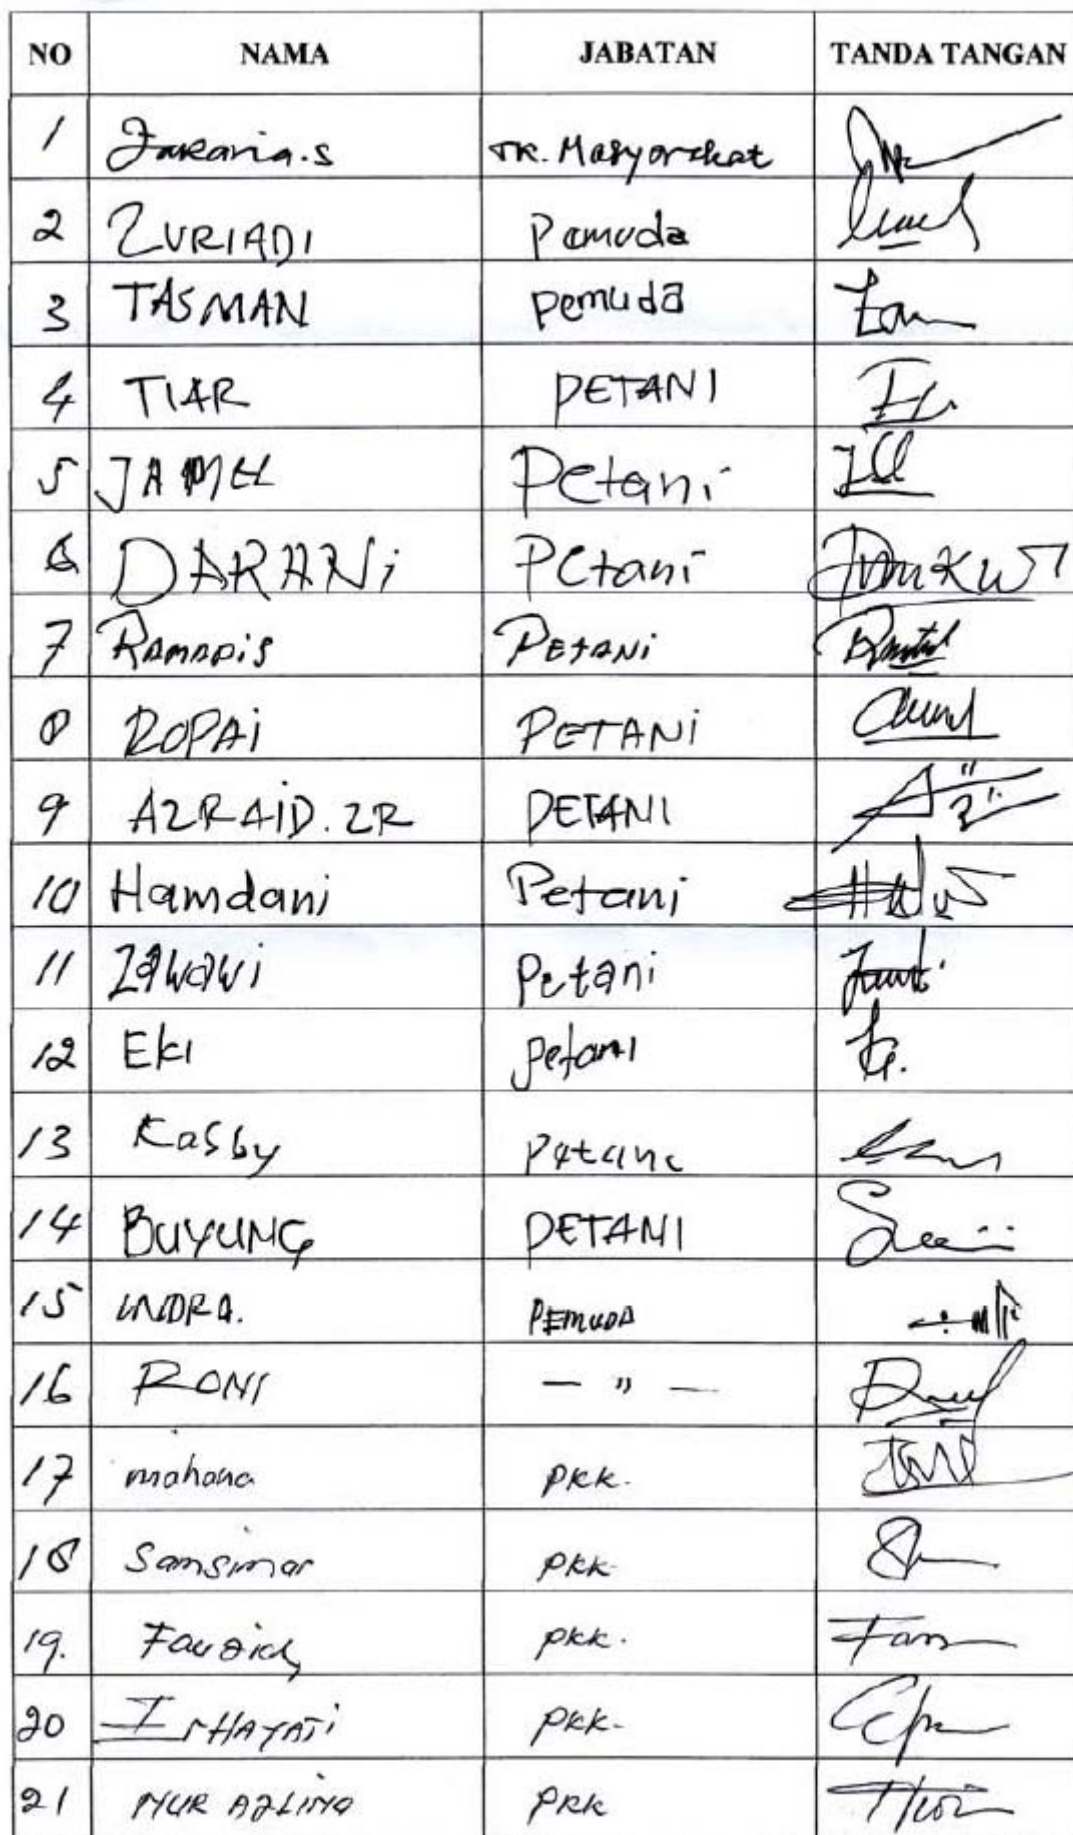 NO NAMA JABATAN TANDA TANGAN
1 Zakaria.s TK. Masyarakat
2 ZURIADI Pemuda
3 TASMAN pemuda
4 TIAR PETANI
5 JAMEL Petani
6 DARANI Petani
7 RAMADIS PETANI
8 ROPAI PETANI
9 AZRAID. ZR PETANI
10 Hamdani Petani
11 Zawawi Petani
12 Eki petani
13 Kasby Petani
14 BUYUNG PETANI
15 INDRA. PEMUDA
16 RONI — " —
17 mahana PKK.
18 Samsimar PKK-
19. Fauziah PKK.
20 PKK-
21 NUR AZLINA PKK